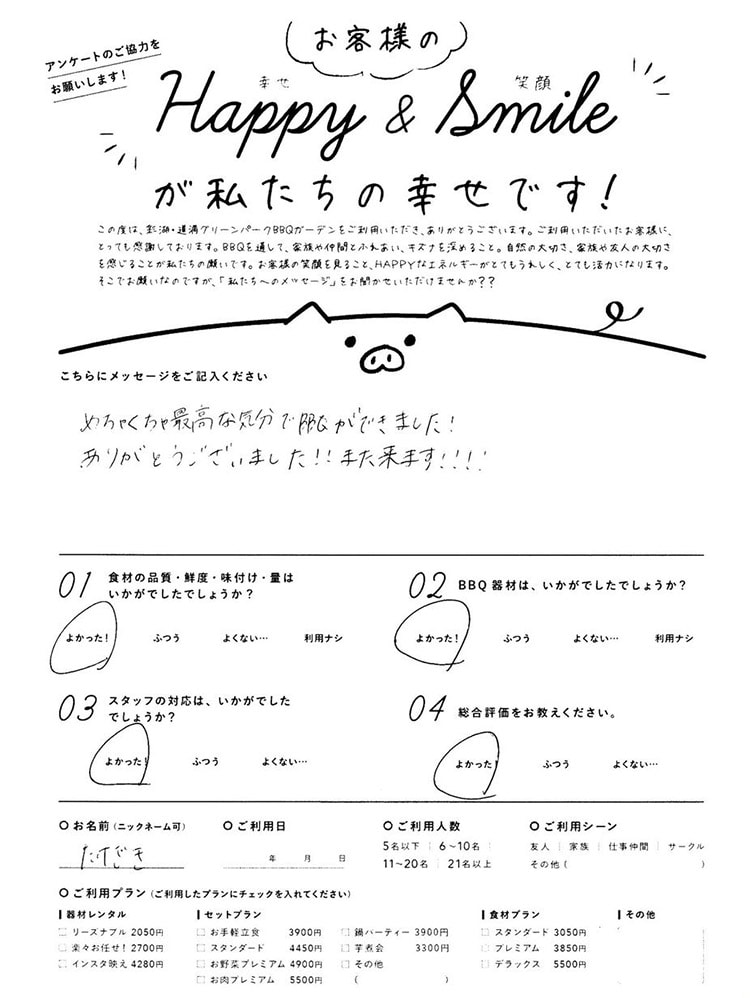 アンケートのご協力を
お願いします!
お客様の
幸せ 笑顔
Happy & Smile
が私たちの幸せです!
この度は、彩湖・道満グリーンパークBBQガーデンをご利用いただき、ありがとうございます。ご利用いただいたお客様に、
とっても感謝しております。BBQを通して、家族や仲間とふれあい、キズナを深めること。自然の大切さ、家族や友人の大切さ
を感じることが私たちの願いです。お客様の笑顔を見ること、HAPPYなエネルギーがとてもうれしく、とても活力になります。
そこでお願いなのですが、「私たちへのメッセージ」をお聞かせいただけませんか??
こちらにメッセージをご記入ください
めちゃくちゃ最高な気分でBBQができました!
ありがとうございました!!また来ます!!!!
01 食材の品質・鮮度・味付け・量は
いかがでしたでしょうか?
よかった! ふつう よくない… 利用ナシ
02 BBQ器材は、いかがでしたでしょうか?
よかった! ふつう よくない… 利用ナシ
03 スタッフの対応は、いかがでした
でしょうか?
よかった! ふつう よくない…
04 総合評価をお教えください。
よかった! ふつう よくない…
お名前(ニックネーム可)
たけざき
ご利用日
年 月 日
ご利用人数
5名以下 6~10名
11~20名 21名以上
ご利用シーン
友人 家族 仕事仲間 サークル
その他( )
ご利用プラン(ご利用したプランにチェックを入れてください)
器材レンタル
リーズナブル 2050円
楽々お任せ! 2700円
インスタ映え 4280円
セットプラン
お手軽立食 3900円
スタンダード 4450円
お野菜プレミアム 4900円
お肉プレミアム 5500円
鍋パーティー 3900円
芋煮会 3300円
その他
( )
食材プラン
スタンダード 3050円
プレミアム 3850円
デラックス 5500円
その他